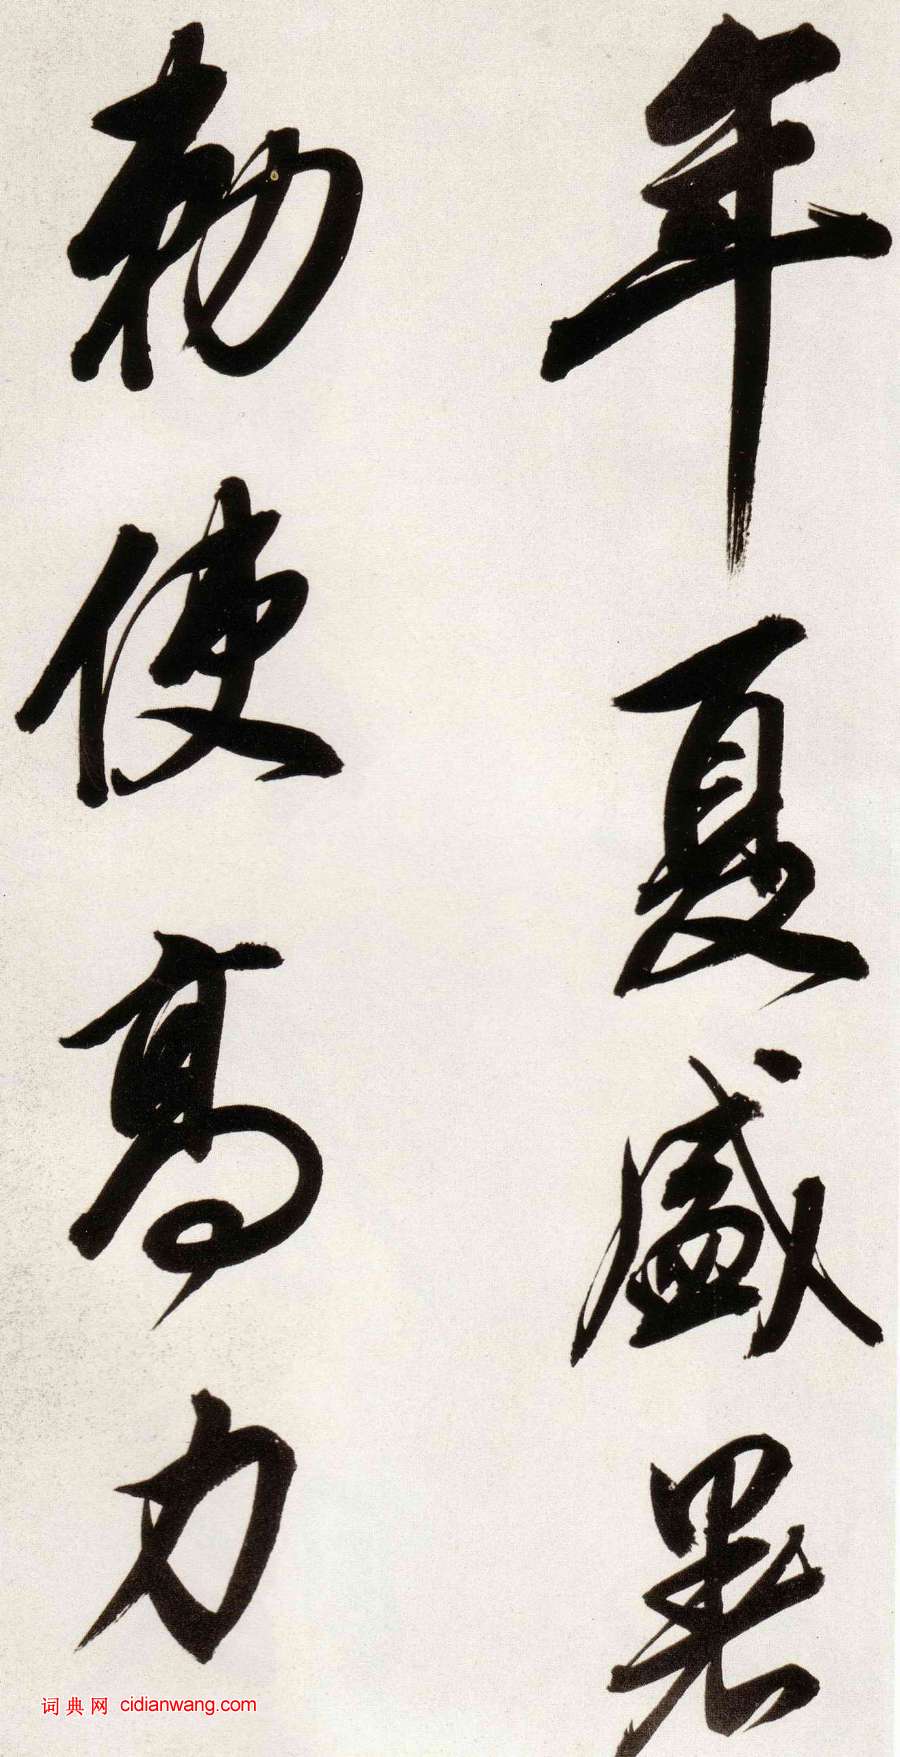 年夏盛暑
勅使高力
词典网 cidianwang.com